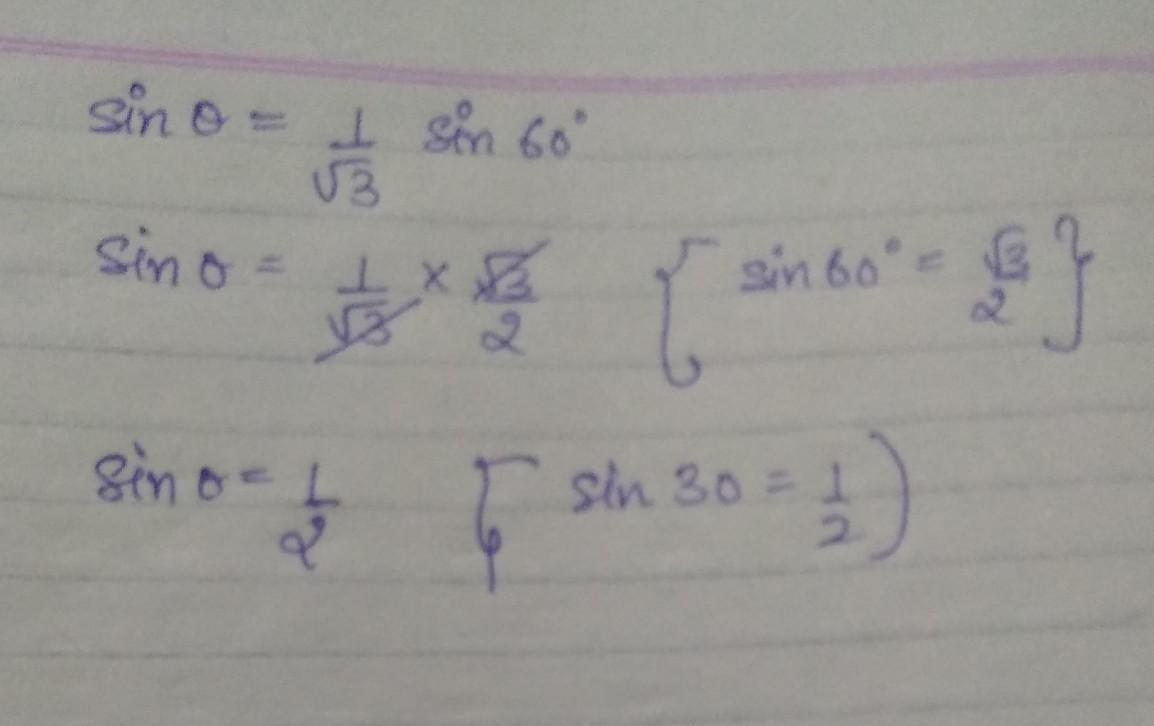 sin θ = 1/√3 sin 60°
sin θ = 1/√3 × √3/2 { sin 60° = √3/2 }
sin θ = 1/2 [ sin 30 = 1/2 )